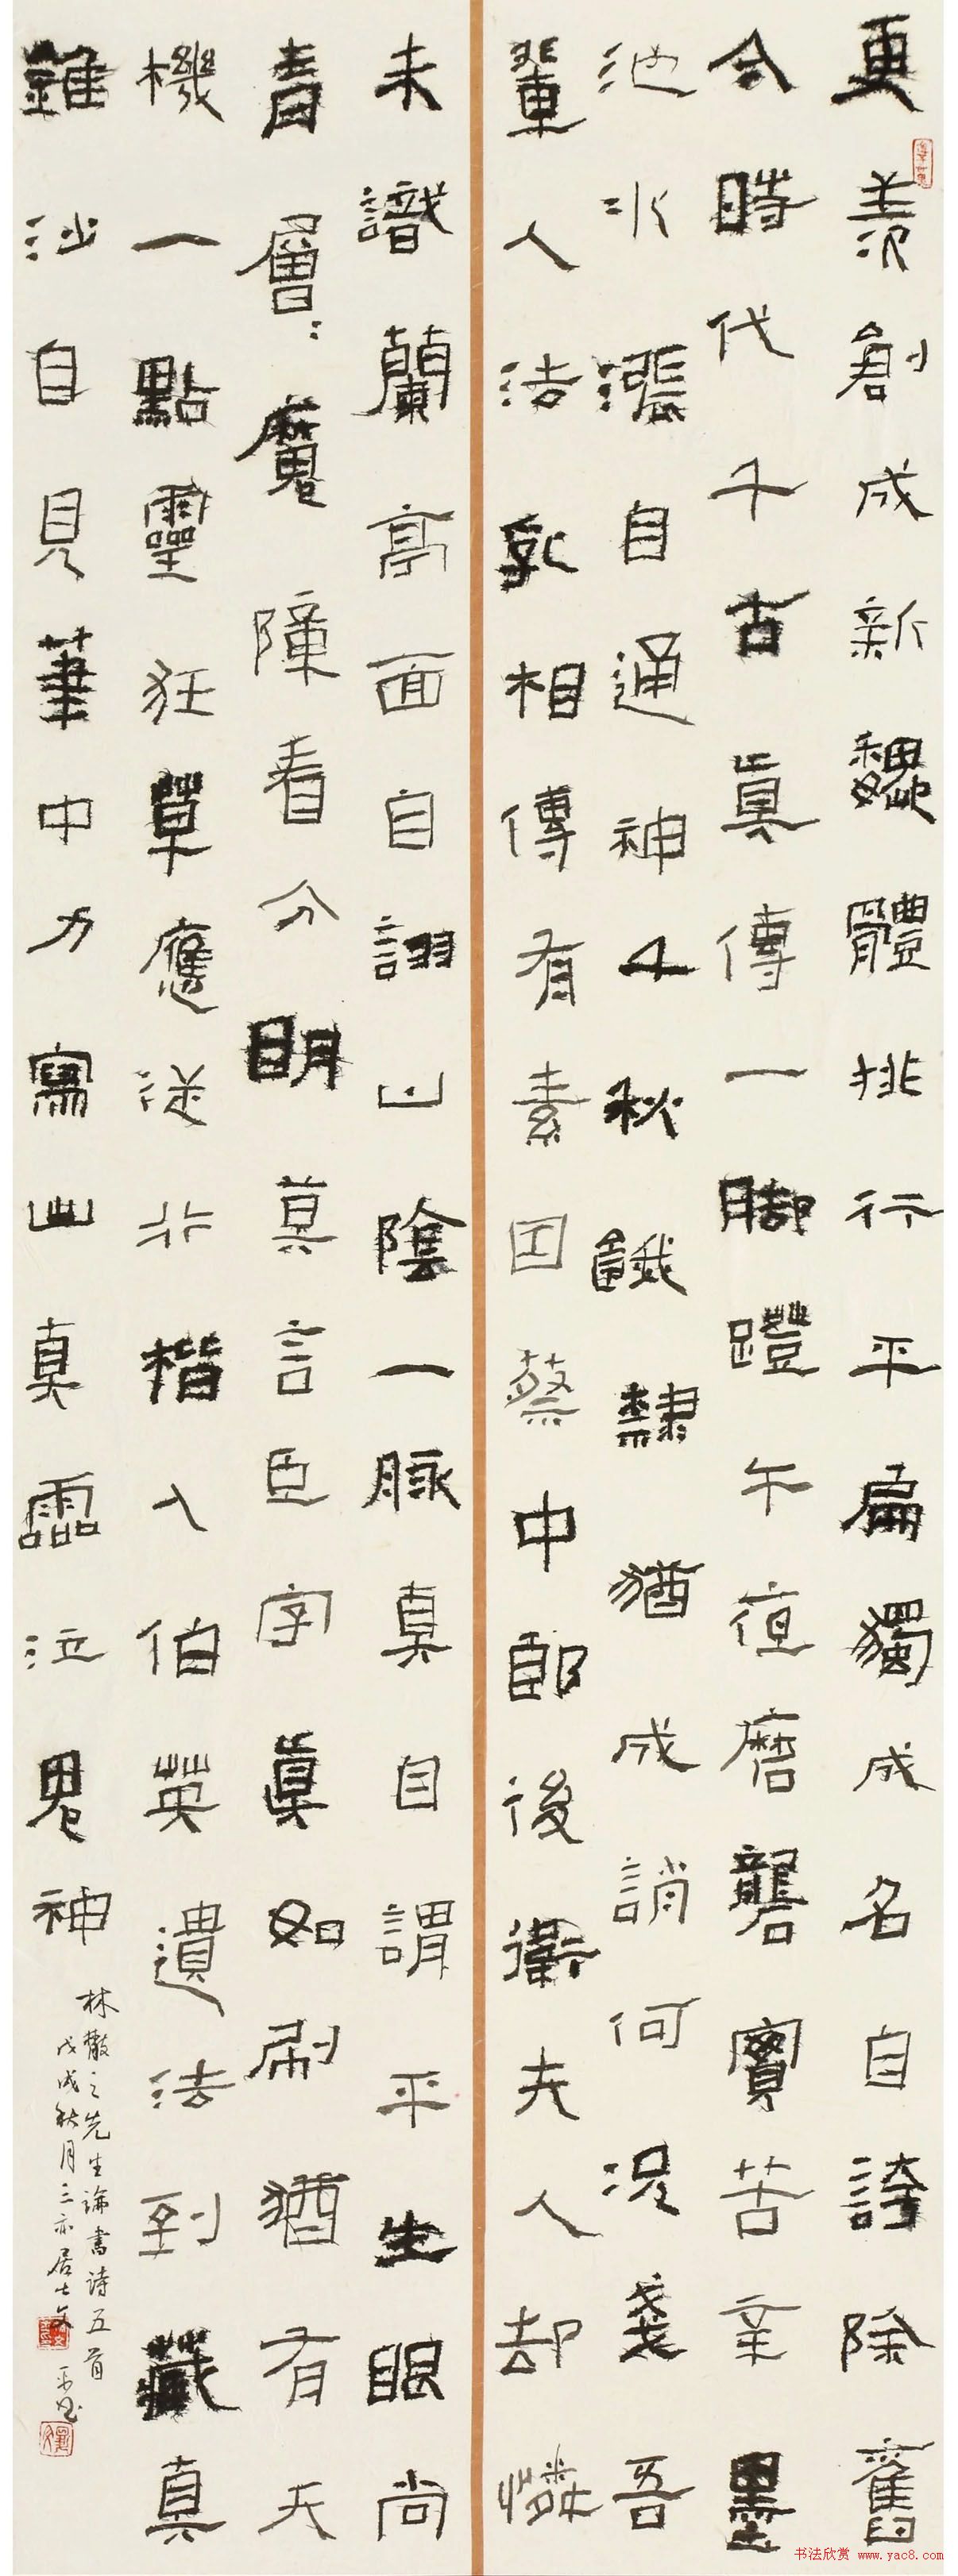 更羨創成新魏體排行平扁獨成名自誇除舊
今時代千古真傳一脚蹬午夜磨礱實苦辛墨
池水漲自通神千秋餓隸猶成誚何況戔戔吾
輩人法乳相傳有素因蔡中郎後衛夫人却憐
未識蘭亭面自詡山陰一脉真自謂平生眼尚
青層:魔障看分明莫言臣字真如刷猶有天
機一點靈狂草應從非楷入伯英遺法到藏真
錐沙自見筆中力寫出真靈泣鬼神
林散之先生論書詩五首
戊戌秋月三亦居士文平書
书法欣赏 www.yac8.com